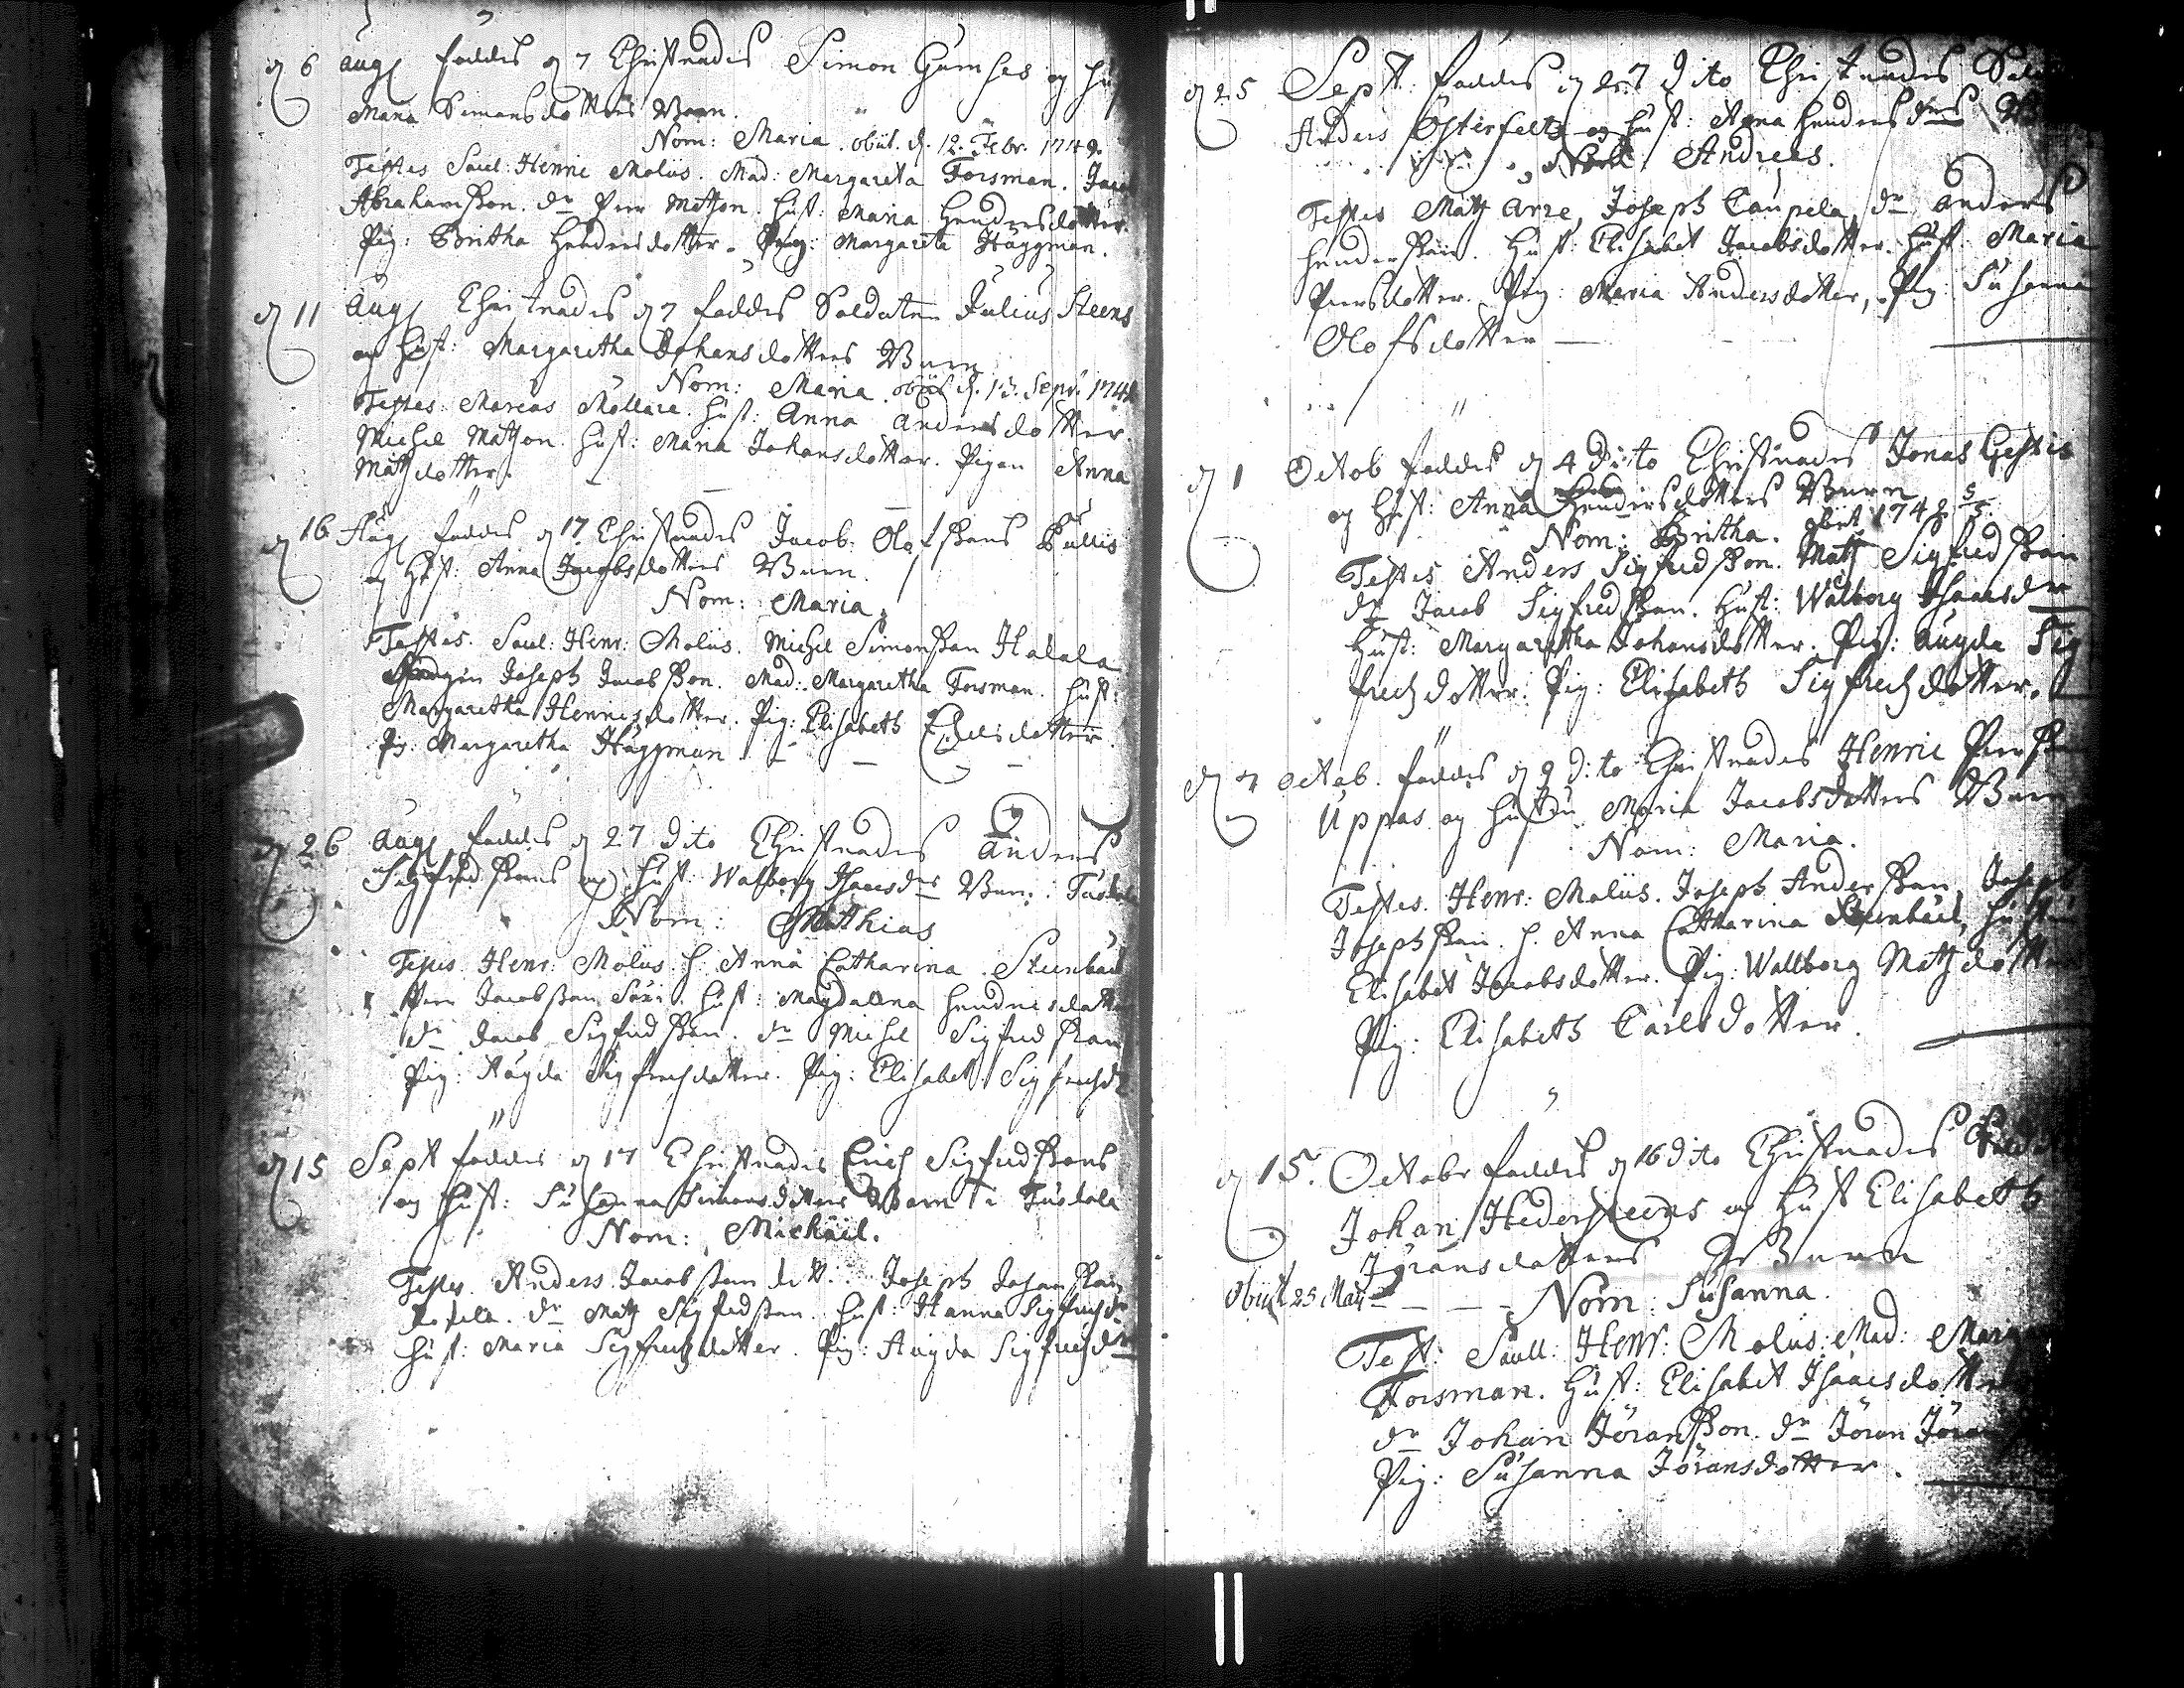 d 6 Aug föddes d 7 Christnades Simon Gumses og hu
Maria Simonsdotters Barn.
Nom: Maria. obiit. d. 12. Febr. 1749.
Testes Saul: Henric Molius. Mad: Margareta Forsman. Jac
Abrahamsson. dr Peer Matson. hust: Maria Hendersdotter
Pig: Britha Hendersdotter. Pig: Margareta Häggman.
d 11 Aug Christnades d 7 föddes Soldaten Julius Steens
og hust: Margaretha Johansdotters Barn
Nom: Maria. obiit d. 13. Sept. 174
Testes: Marcus Mollare. hust: Anna Andersdotter.
Michel Matson. hust: Maria Johansdotter. Pigan Anna
Matsdotter.
d 16 Aug föddes d 17 Christnades Jacob Olofssons Pullis
og Hust: Anna Jacobsdotters Barn.
Nom: Maria.
Testes. Saul: Henr: Molius. Michel Simonsson Halala
Joseph Jacobsson. Mad: Margaretha Forsman. hust:
Margaretha Henricsdotter. Pig: Elisabeth
Pig: Margaretha Häggman
d 26 Aug föddes d 27 dito Christnades Anders
Sigfredssons og hust: Walborg Isaacsdrs Barn.
Nom: Mathias
Testes. Henr: Molius. h Anna Catharina Steenbäck
Peer Jacobsson hust: Magdalena Hendricsdotter
dr Jacob Sigfredsson. dr Michel Sigfredsson
Pig: Augda Sigfredsdotter. Pig: Elisabet Sigfredsdr
d 15 Sept föddes d 17 Christnades Erich Sigfredssons
og Hust: Susanna Simonsdotters Barn i Tuskala
Nom: Michaël.
Testes. Anders Jacobsson Joseph Johansson
dr Mats Sigfredsson. hust: Hanna Sigfredsdr
hust: Maria Sigfredsdotter. Pig: Augda Sigfredsdr
d 25 Sept. föddes d 27 dito Christnades
Anders Österfelts og hust: Anna Hendersdrs
Nom: Andreas.
Testes Mats Arre, Joseph Caupela, dr Anders
Hendersson. Hust: Elisabet Jacobsdotter. hust: Maria
Peersdotter. Pig: Maria Andersdotter, Pig: Susanna
Olofsdotter
d 1 Octob föddes d 4 Dito Christnades Jonas
og Hust: Anna Hendersdotters Barn
Nom: Britha. obiit 1748 5/5.
Testes Anders Sigfredsson. Mats Sigfredsson
dr Jacob Sigfredsson. Hust: Walborg Isaacsdr
Hust: Margaretha Johansdotter. Pig: Augda Sig
fredsdotter. Pig: Elisabeth Sigfredsdotter.
d 7 Octob. föddes d 9 d:to Christnades Henric Peerss
Uppas og Hustru Maria Jacobsdotters Barn
Nom: Maria.
Testes. Henr: Molius. Joseph Andersson, Joseph
Josephsson. h. Anna Catharina Steenbäck, Hustru
Elisabet Jacobsdotter. Pig: Wallborg Matsdotter
Pig: Elisabeth Carlsdotter.
d 15. Octobr föddes d 16 dito Christnades
Johan Hedersteens og Hust Elisabeth
Jöransdotters Barn
Obiit 25 Maij Nom: Susanna.
Test: Saull: Henr: Molius: Mad: Marga
Forsman. Hust: Elisabet Isaacsdotter
dr Johan Jöransson. dr Jöran Jöran
Pig: Susanna Jöransdotter.